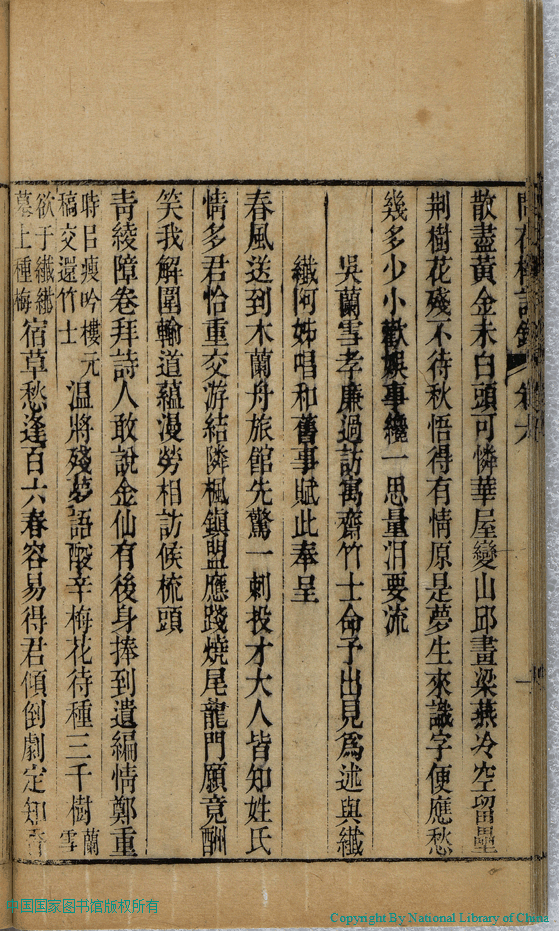 散盡黃金未白頭可憐華屋變山邱畫梁燕冷空留壘
荆樹花殘不待秋悟得有情原是夢生來識字便應愁
幾多少小歡娛事纔一思量泪要流
吳蘭雪孝廉過訪寓齋竹士命予出見爲述與纖
纖阿姊唱和舊事賦此奉呈
春風送到木蘭舟旅館先驚一刺投才大人皆知姓氏
情多君恰重交游結隣楓鎮盟應踐燒尾龍門願竟酬
笑我解圍輸道蘊漫勞相訪候梳頭
青綾障卷拜詩人敢說金仙有後身捧到遺編情鄭重
時㠯瘦吟樓元稿交還竹士温將殘夢語酸辛梅花待種三千樹蘭雪
欲于纖纖墓上種梅宿草愁逢百六春容易得君傾倒劇定知
中国国家图书馆版权所有
Copyright By National Library of China